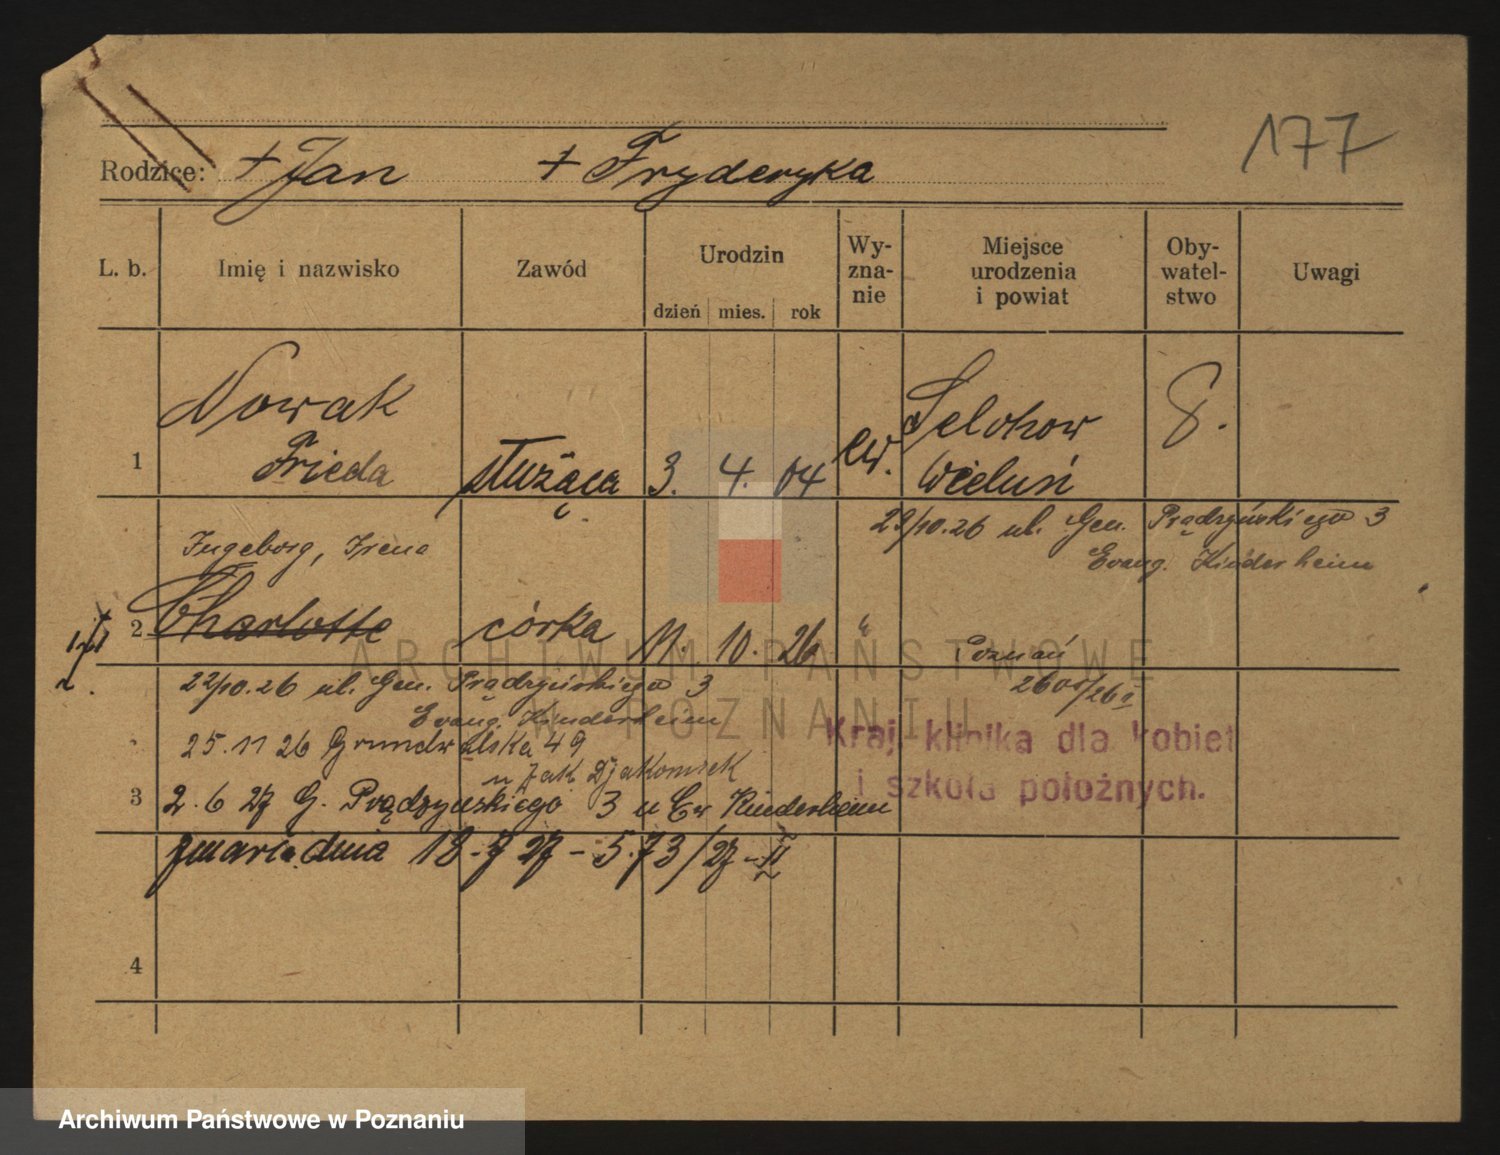 177
Rodzice: + Jan + Fryderyka
L. b. Imię i nazwisko Zawód Urodzin dzień mies. rok Wy-zna-nie Miejsce urodzenia i powiat Oby-watel-stwo Uwagi
Nowak
1 Frieda służąca 3. 4. 04 ew. Wieluń
29/10.26 ul. Gen. Prądzyńskiego 3
Evang. Kinderheim
Ingeborg, Irena
2 Charlotte córka 11. 10. 26 " Poznań
22/10.26 ul. Gen. Prądzyńskiego 3
Evang. Kinderheim
25.11 26 Grundwalska 49
Kraj. klinika dla kobiet
i szkoła położnych.
3 2.6 27 G. Prądzyńskiego 3 u Ew Kinderheim
zmarła dnia 18.7 27 - 573/27-II
4
ARCHIWUM PAŃSTWOWE
W POZNANIU
Archiwum Państwowe w Poznaniu